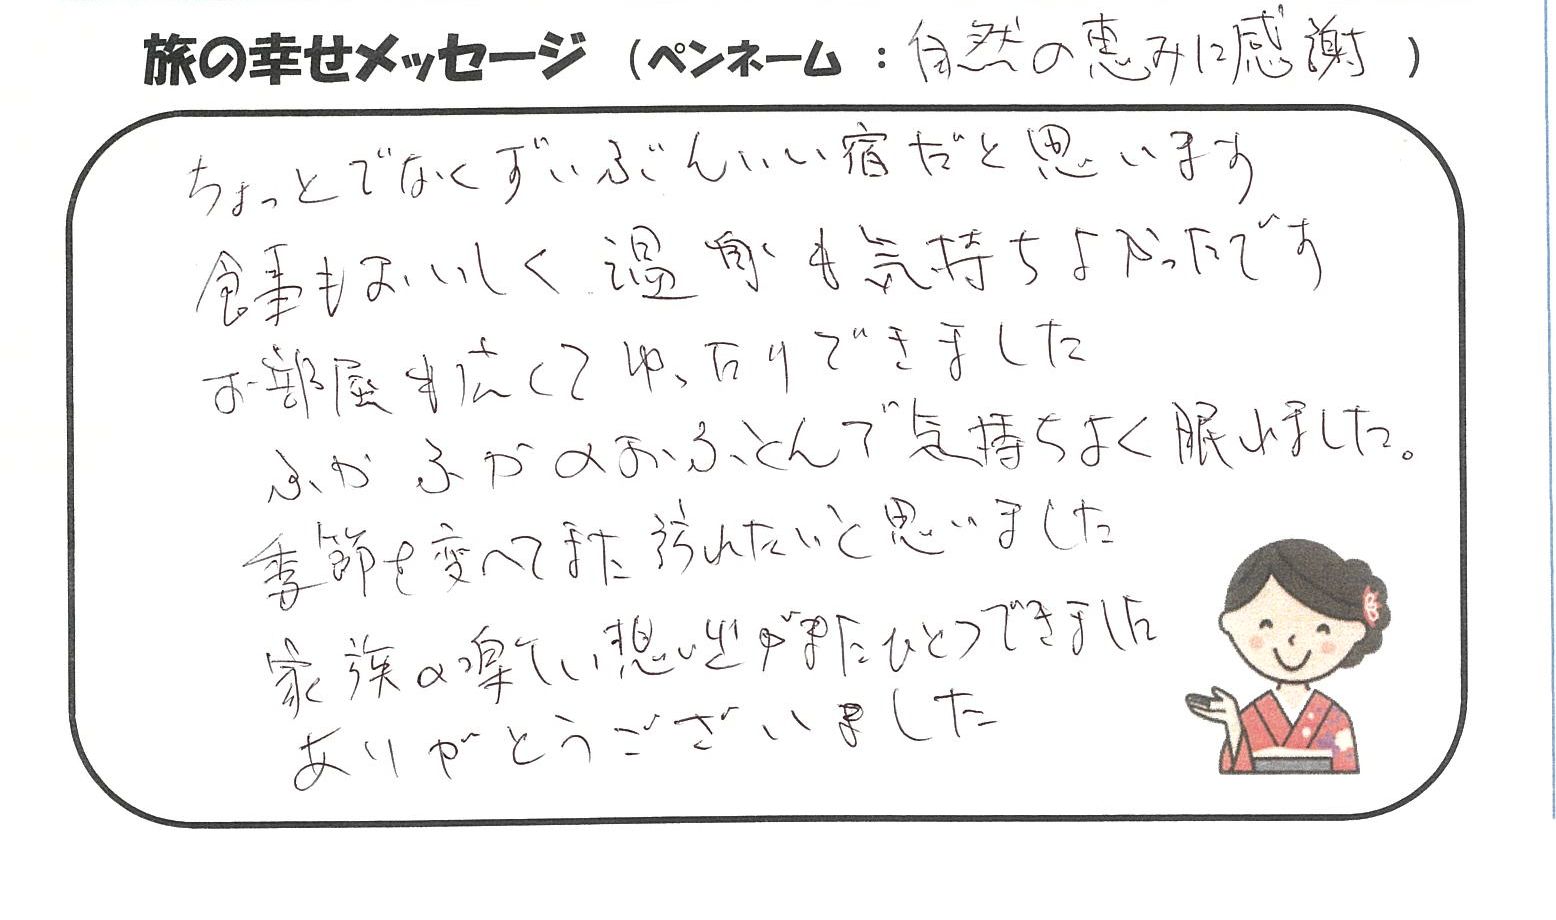 旅の幸せメッセージ (ペンネーム : 自然の恵みに感謝 )
ちょっとでなくずいぶんいい宿だと思います
食事もおいしく 温泉も気持ちよかったです
お部屋も広くてゆったりできました
ふかふかのおふとんで気持ちよく眠れました。
季節を変へてまた訪れたいと思いました
家族の楽しい思い出がまたひとつできました
ありがとうございました